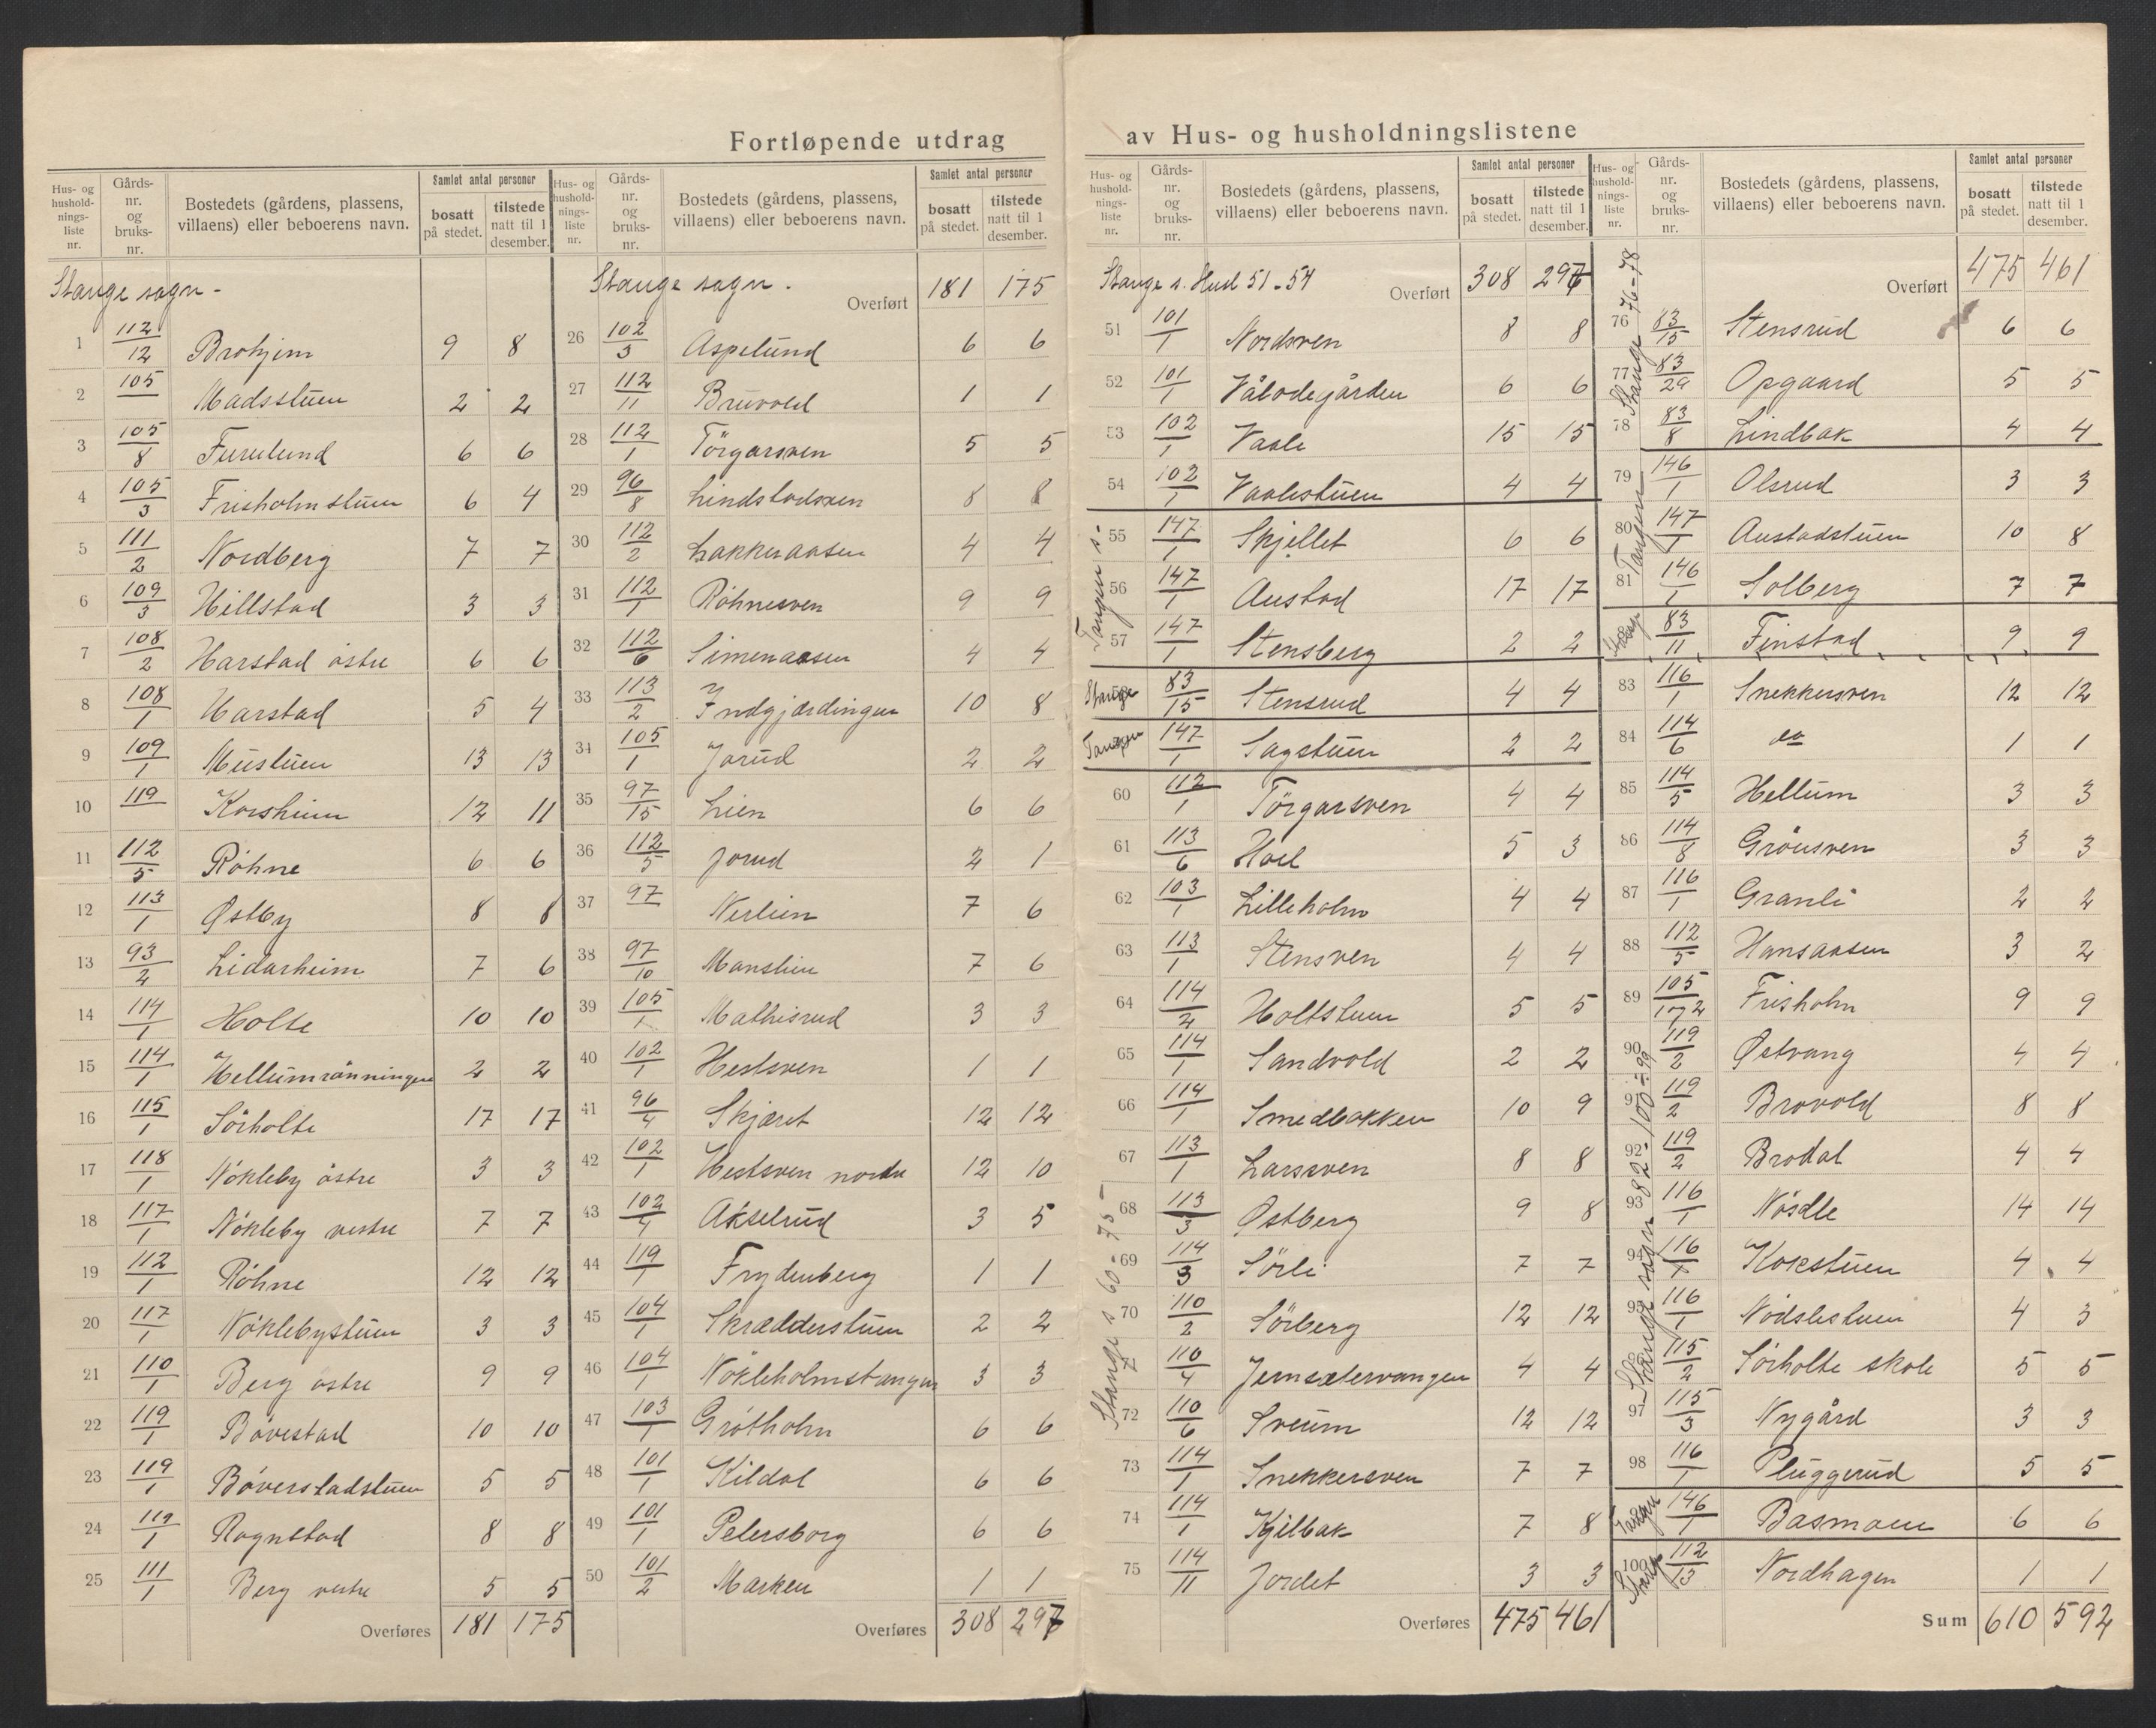 Fortløpende utdrag av Hus- og husholdningslistene
Hus- og hushold- nings- liste nr. | Gårds- nr. og bruks- nr. | Bostedets (gårdens, plassens, villaens) eller beboerens navn. | Samlet antal personer | bosatt på stedet. | tilstede natt til 1 desember.
Stange sogn -
1 112/12 Brohjem 9 8
2 105 Madsstuen 2 2
3 105/8 Furulund 6 6
4 105/3 Frisholmstuen 6 4
5 111/2 Nordberg 7 7
6 109/3 Hillstad 3 3
7 108/2 Harstad östre 6 6
8 108/1 Harstad 5 4
9 109/1 Müstuen 13 13
10 119 Korsheim 12 11
11 112/5 Röhne 6 6
12 113/1 Østby 8 8
13 93/2 Lidarheim 7 6
14 114/1 Holte 10 10
15 114/1 Hellumrönningen 2 2
16 115/1 Sörholte 17 17
17 118/1 Nökleby östre 3 3
18 117/1 Nökleby vestre 7 7
19 112/1 Röhne 12 12
20 117/1 Nöklebystuen 3 3
21 110/1 Berg östre 9 9
22 119/1 Bövestad 10 10
23 119/1 Böverstadstuen 5 5
24 119/1 Rognstad 8 8
25 111/1 Berg vestre 5 5
Overføres 181 175
Hus- og hushold- nings- liste nr. | Gårds- nr. og bruks- nr. | Bostedets (gårdens, plassens, villaens) eller beboerens navn. | Samlet antal personer | bosatt på stedet. | tilstede natt til 1 desember.
Stange sogn. Overført 181 175
26 102/3 Aspelund 6 6
27 112/11 Bruvold 1 1
28 112/1 Törgarsven 5 5
29 96/8 Lindstadsven 8 8
30 112/2 Lakkeraasen 4 4
31 112/1 Röhnesven 9 9
32 112/6 Simenaasen 4 4
33 113/2 Indgjærdingen 10 8
34 105/1 Jorud 2 2
35 97/15 Lien 6 6
36 112/5 Jorud 2 1
37 97 Nerlien 7 6
38 97/10 Manslien 7 6
39 105/1 Mathisrud 3 3
40 102/1 Hestsven 1 1
41 96/4 Skjæret 12 12
42 102/1 Hestsven nordre 12 10
43 102/4 Akselrud 3 5
44 119/1 Frydenberg 1 1
45 104/1 Skrædderstuen 2 2
46 104/1 Nökleholmstangen 3 3
47 103/1 Grötholm 6 6
48 101/1 Kildal 6 6
49 101/1 Petersborg 6 6
50 101/2 Marken 1 1
Overføres 308 297
Hus- og hushold- nings- liste nr. | Gårds- nr. og bruks- nr. | Bostedets (gårdens, plassens, villaens) eller beboerens navn. | Samlet antal personer | bosatt på stedet. | tilstede natt til 1 desember.
Stange s. Husl 51-54 Overført 308 297
51 101/1 Nordsven 8 8
52 101/1 Vålodegården 6 6
53 102/1 Vaale 15 15
54 102/1 Vaalestuen 4 4
Tangen s.
55 147/1 Skjellet 6 6
56 147/1 Austad 17 17
57 147/1 Stensberg 2 2
Stange 83/15 Stensrud 4 4
Tangen 147/1 Sagstuen 2 2
Stange s 60-75
60 112/1 Törgarsven 4 4
61 113/6 Hoel 5 3
62 103/1 Lilleholm 4 4
63 113/1 Stensven 4 4
64 114/2 Holtstuen 5 5
65 114/1 Sandvold 2 2
66 114/1 Smedbakken 10 9
67 113/1 Larssven 8 8
68 113/3 Østberg 9 8
69 114/3 Sörli 7 7
70 110/2 Sörberg 12 12
71 110/4 Jemsætervangen 4 4
72 110/6 Sveum 12 12
73 114/1 Snekkersven 7 7
74 114/1 Kjilbak 7 8
75 114/11 Jordet 3 3
Overføres 475 461
Hus- og hushold- nings- liste nr. | Gårds- nr. og bruks- nr. | Bostedets (gårdens, plassens, villaens) eller beboerens navn. | Samlet antal personer | bosatt på stedet. | tilstede natt til 1 desember.
Overført 475 461
Stange 76-78
76 83/15 Stensrud 6 6
77 83/29 Opgaard 5 5
78 83/8 Lindbak 4 4
Tangen
79 146/1 Olsrud 3 3
80 147/1 Austadstuen 10 8
81 146/1 Solberg 7 7
Stange 83/11 Finstad 9 9
Stange sogn 82-100÷99
83 116/1 Snekkersven 12 12
84 114/6 do 1 1
85 114/5 Hellum 3 3
86 114/8 Grönsven 3 3
87 116/1 Granli 2 2
88 112/5 Hansaasen 3 2
89 105/172 Frisholm 9 9
90 119/2 Østvang 4 4
91 119/2 Brovold 8 8
92 119/2 Brodal 4 4
93 116/1 Nösdle 14 14
94 116/1 Kokstuen 4 4
95 116/1 Nödslestuen 4 3
115/2 Sörholte skole 5 5
97 115/3 Nygård 3 3
98 116/1 Pluggerud 5 5
Tangen 146/1 Basmoen 6 6
100 Stange 112/13 Nordhagen 1 1
Sum 610 592